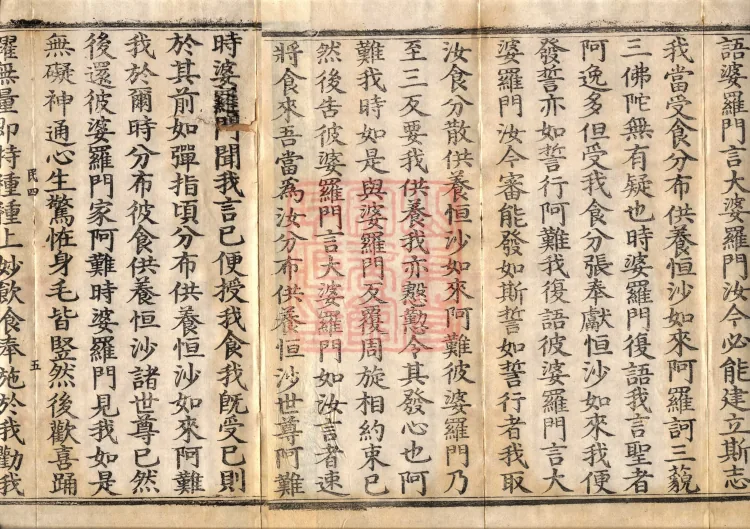 語婆羅門言大婆羅門汝今必能建立斯志
我當受食分布供養恒沙如來阿羅訶三藐
三佛陀無有疑也時婆羅門復語我言聖者
阿逸多但受我食分張奉獻恒沙如來我便
發誓亦如誓行阿難我復語彼婆羅門言大
婆羅門汝今審能發如斯誓如誓行者我取
汝食分散供養恒沙如來阿難彼婆羅門乃
至三反要我供養我亦慇懃令其發心也阿
難我時如是與婆羅門反覆周旋相約束已
然後告彼婆羅門言大婆羅門如汝言者速
將食來吾當為汝分布供養恒沙世尊阿難
時婆羅門聞我言已便授我食我既受已則
於其前如彈指頃分布供養恒沙如來阿難
我於爾時分布彼食供養恒沙諸世尊已然
後還彼婆羅門家阿難時婆羅門見我如是
無礙神通心生驚怪身毛皆豎然後歡喜踊
民四
五
躍無量即持種種上妙飲食奉施於我勸我